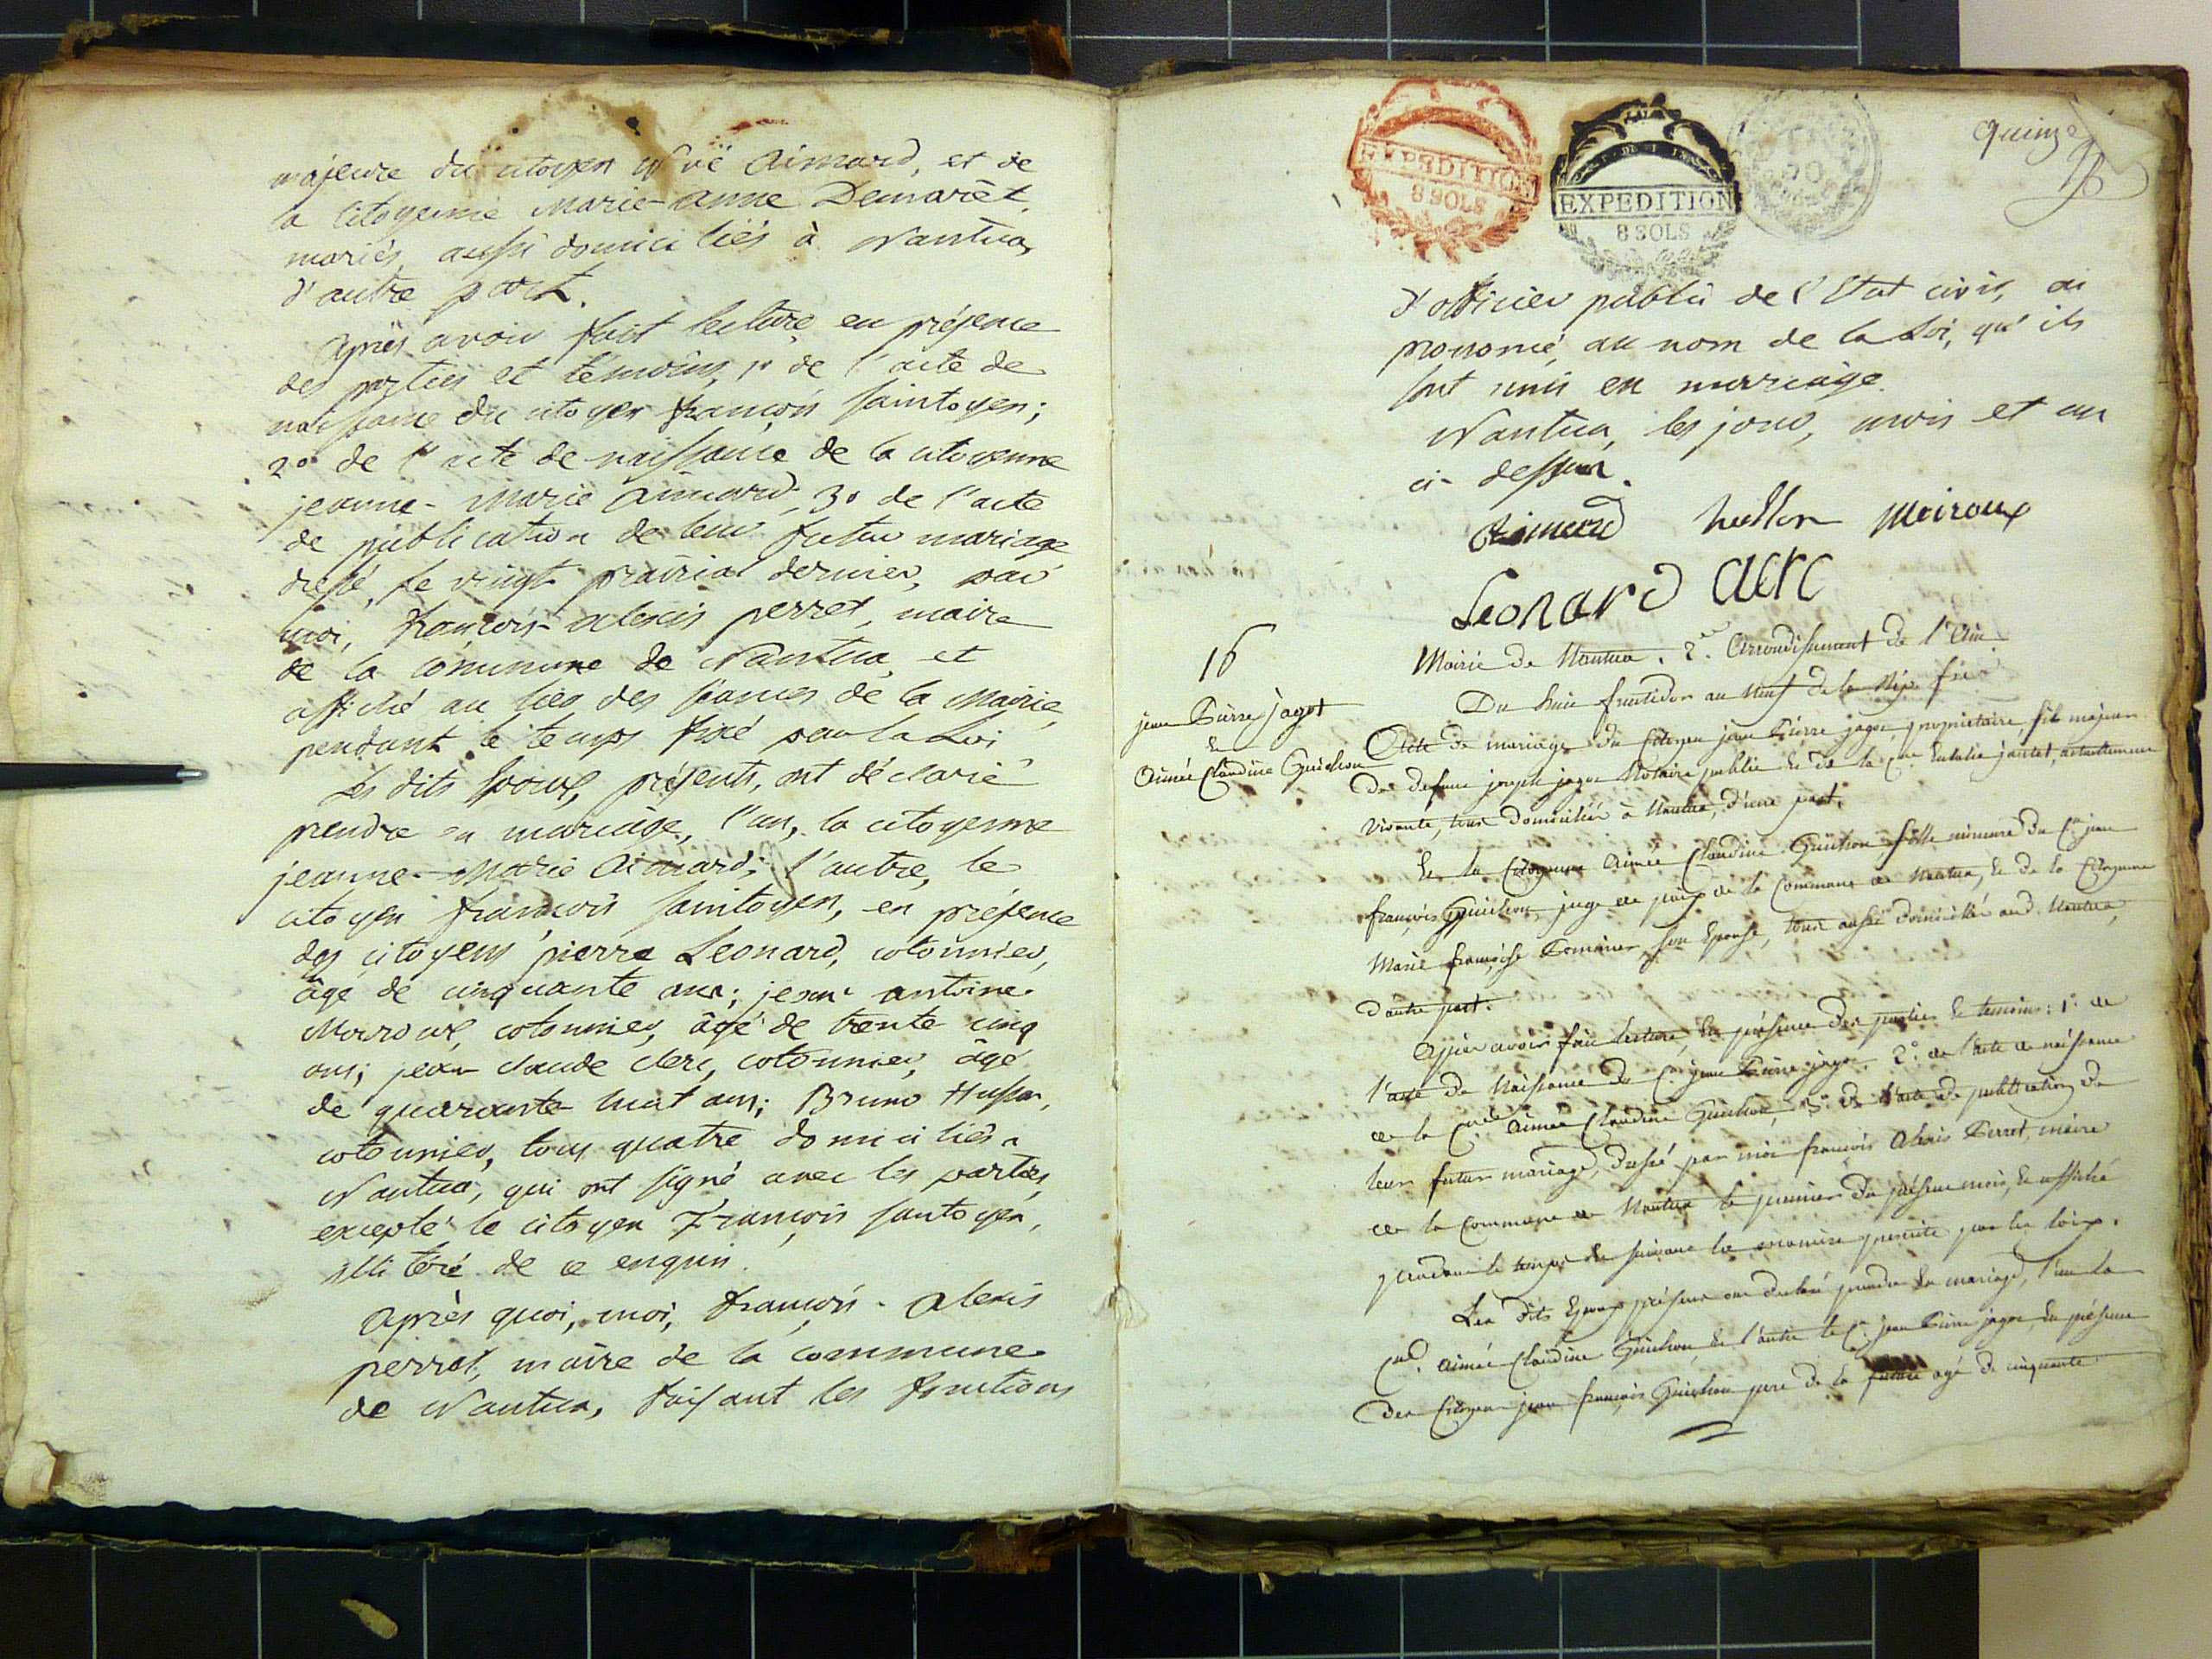 majeure du citoyen Noë Aimard, et de
la citoyenne Marie-anne Demarêt,
mariés, aussi domiciliés à Nantua,
d'autre part.
Après avoir fait lecture en présence
des parties et témoins, 1° de l'acte de
naissance du citoyen françois saintoyen;
2° de l'acte de naissance de la citoyenne
jeanne-Marie Aimard, 3° de l'acte
de publication de leur futur mariage
dressé, le vingt prairial dernier, par
moi, françois-alexis perret, maire
de la commune de Nantua, et
affiché au lieu des séances de la Mairie,
pendant le temps fixé par la Loi
Les dits Epoux, présents, ont déclaré
prendre en mariage, l'un, la citoyenne
jeanne-Marie Aimard; l'autre, le
citoyen françois saintoyen, en présence
des citoyens pierre Leonard, cotonnier,
âgé de cinquante ans; jean antoine
cotonnier, âgé de trente cinq
ans; jean claude clerc, cotonnier, âgé
de quarante huit ans; Bruno Husson,
cotonnier, tous quatre domiciliés à
Nantua, qui ont signé avec les parties,
excepté le citoyen François saintoyen,
illitéré de ce enquis.
Après quoi, moi, françois-Alexis
perret, maire de la commune
de Nantua, faisant les fonctions
quinze
EXPEDITION
8 SOLS
EXPEDITION
8 SOLS
d'officier public de l'Etat civil, ai
prononcé, au nom de la Loi, qu'ils
sont unis en mariage.
Nantua, les jour, mois et an
ci-dessus.
Aimard husson Moiroux
Leonard clerc
16
jean Pierre jagot
&
Aimée Claudine Guichon
Mairie de Nantua. 2e. Arrondissement de l'Ain
Du huit fructidor an neuf de la Rép. fse
Acte de mariage du Citoyen jean Pierre jagot, propriétaire, fils majeur
de defunt joseph jagot Notaire public & de la Cne Eulalie jantet, actuellement
vivante, tous domiciliés à Nantua, d'une part.
Et la Citoyenne Aimée Claudine Guichon fille mineure du Cen jean
françois Guichon, juge de paix de la Commune de Nantua, & de la Citoyenne
Marie françoise son Epouse, tous aussi domiciliés aud. Nantua,
d'autre part.
Après avoir fait lecture, en présence des parties & temoins: 1°. de
l'acte de Naissance du C. jean Pierre jagot. 2°. de l'acte de naissance
de la Cne Aimée Claudine Guichon, 3°. de l'acte de publication de
leur futur mariage, dressé par moi françois Alexis Perret, maire
de la Commune de Nantua le premier du présent mois, & affiché
pendant le temps & suivant la maniere prescrite par les loix.
Les dits Epoux présens ont declaré prendre en mariage, l'un la
Cne. Aimée Claudine Guichon, & l'autre le Cn. jean Pierre jagot en présence
des Citoyens jean françois Guichon pere de la future agé de cinquante